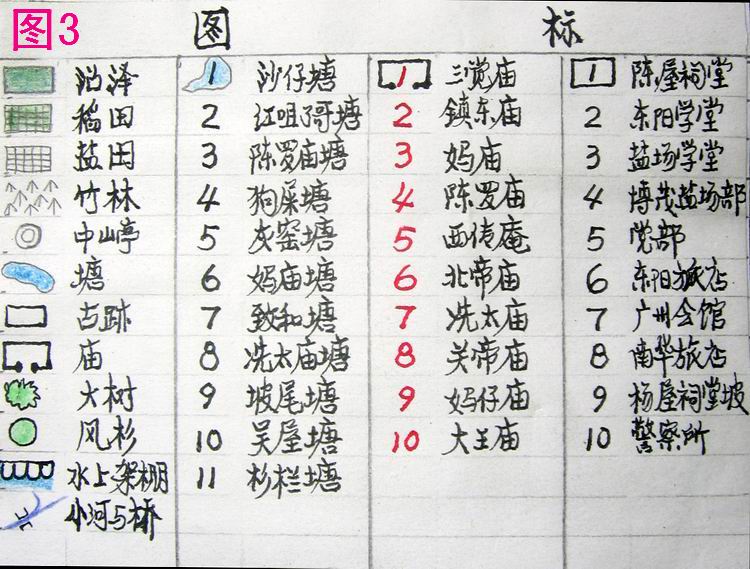 图3
图 标
沼泽 1 沙仔塘 1 三觉庙 1 陈屋祠堂
稻田 2 江咀了哥塘 2 镇东庙 2 东阳学堂
盐田 3 陈罗庙塘 3 妈庙 3 盐场学堂
竹林 4 狗屎塘 4 陈罗庙 4 博茂盐场部
中山亭 5 灰窑塘 5 西传庵 5 党部
塘 6 妈庙塘 6 北帝庙 6 东阳旅店
古跡 7 致和塘 7 冼太庙 7 广州会馆
庙 8 冼太庙塘 8 关帝庙 8 南华旅店
大树 9 坡尾塘 9 妈仔庙 9 杨屋祠堂坡
风杉 10 吴屋塘 10 大王庙 10 警察所
水上架棚 11 杉栏塘
小河与桥